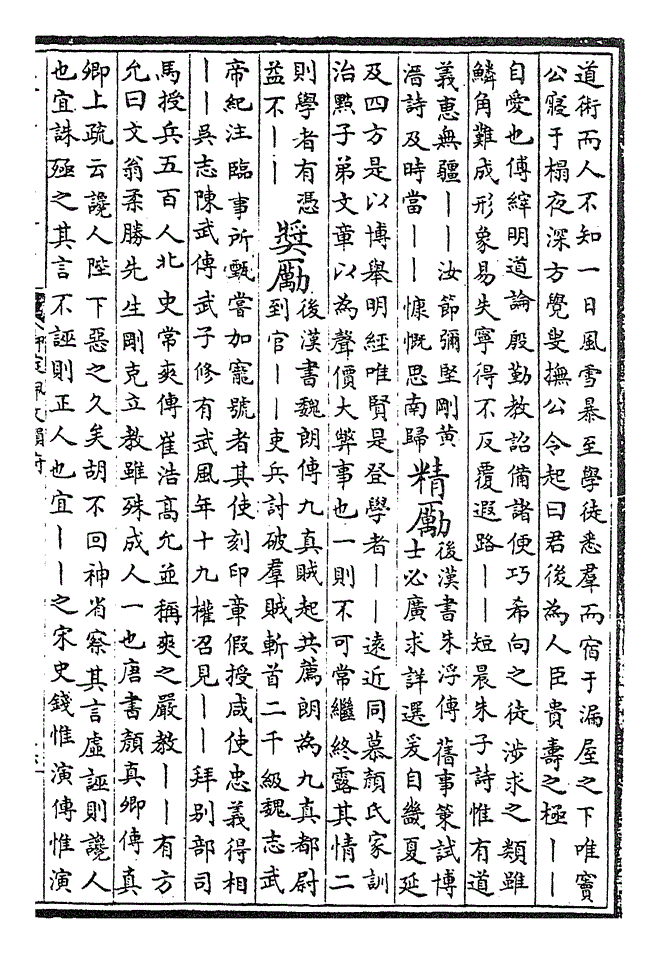 道術而人不知一日風雪暴至學徒悉羣而宿于漏屋之下唯竇
公寢于榻夜深方覺叟撫公令起曰君後為人臣貴壽之極——
自愛也傅縡明道論殷勤教詔備諸便巧希向之徒涉求之類雖
鱗角難成形象易失寧得不反覆遐路——短晨朱子詩惟有道
義惠無疆——汝節彌堅剛黃
溍詩及時當——慷慨思南歸
精勵
後漢書朱浮傳舊事策試博
士必廣求詳選爰自畿夏延
及四方是以博舉明經唯賢是登學者——遠近同慕顏氏家訓
治點子弟文章以為聲價大弊事也一則不可常繼終露其情二
則學者有憑
益不——
獎勵
後漢書魏朗傳九真賊起共薦朗為九真都尉
到官——吏兵討破羣賊斬首二千級魏志武
帝紀注臨事所甄嘗加寵號者其使刻印章假授咸使忠義得相
——吳志陳武傳武子修有武風年十九權召見——拜別部司
馬授兵五百人北史常爽傳崔浩高允並稱爽之嚴教——有方
允曰文翁柔勝先生剛克立教雖殊成人一也唐書顏真卿傳真
卿上疏云讒人陛下惡之久矣胡不回神省察其言虛誣則讒人
也宜誅殛之其言不誣則正人也宜——之宋史錢惟演傳惟演